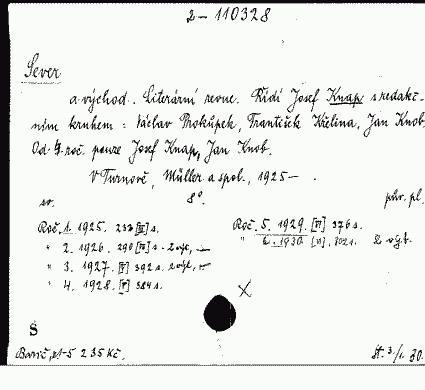 2-110328
Sever
a východ. Literární revue. Řídí Josef Knap s redakč-
ním kruhem: Václav Prokůpek, František Křelina, Jan Knob.
Od 4. roč. pouze Josef Knap, Jan Knob.
V Turnově, Müller a spol., 1925 — .
sv. 8°. pův. pl.
Roč. 1. 1925. [III] s. Roč. 5. 1929. [VI] 376 s.
" 2. 1926. 290 [VI] s. " 6. 1930. [VI]. 302 s.
" 3. 1927. [V] 392 s.
" 4. 1928. [V] 384 s.
X
S
1-5 235 Kč. 3/1. 30.